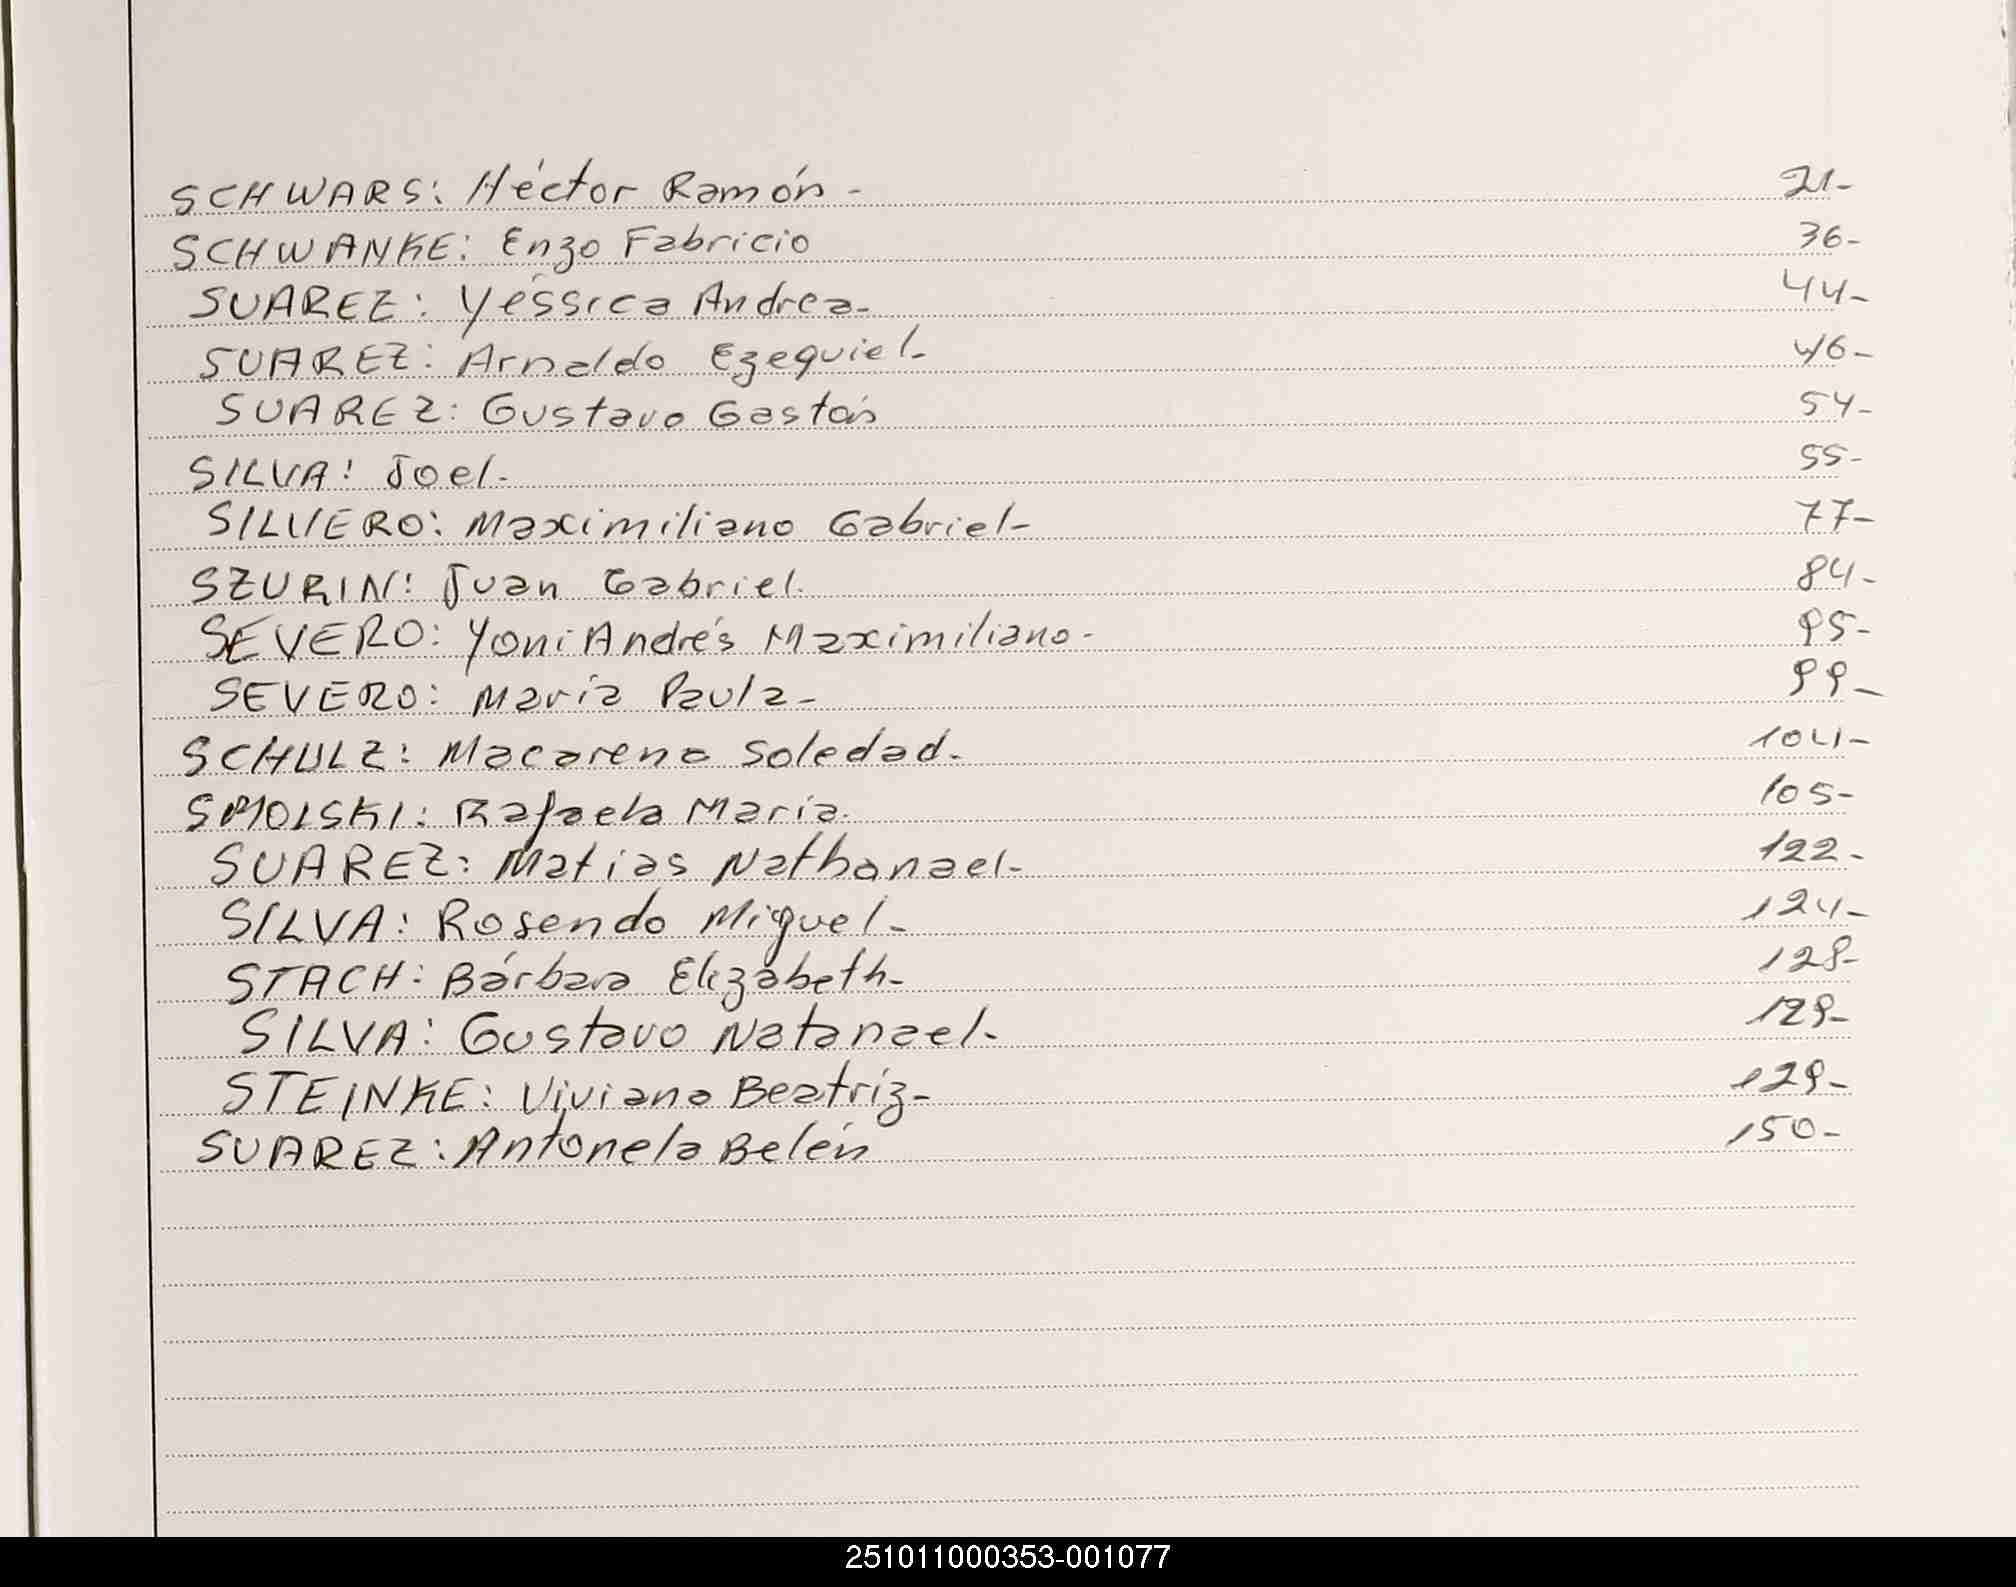 SCHWARS: Héctor Ramón - 21-
SCHWANKE: Enzo Fabricio 36-
SUAREZ: Yéssica Andrea- 44-
SUAREZ: Arnaldo Ezequiel- 46-
SUAREZ: Gustavo Gastón 54-
SILVA: Joel- 55-
SILVERO: Maximiliano Gabriel- 77-
SZURIN: Juan Gabriel. 84-
SEVERO: Yoni Andrés Maximiliano- 95-
SEVERO: María Paula- 99-
SCHULZ: Macarena Soledad- 104-
SMOLSKI: Rafaela María. 105-
SUAREZ: Matías Nathanael- 122-
SILVA: Rosendo Miguel- 124-
STACH: Bárbara Elizabeth- 128-
SILVA: Gustavo Natanael- 129-
STEINKE: Viviana Beatriz- 129-
SUAREZ: Antonela Belén 150-
251011000353-001077